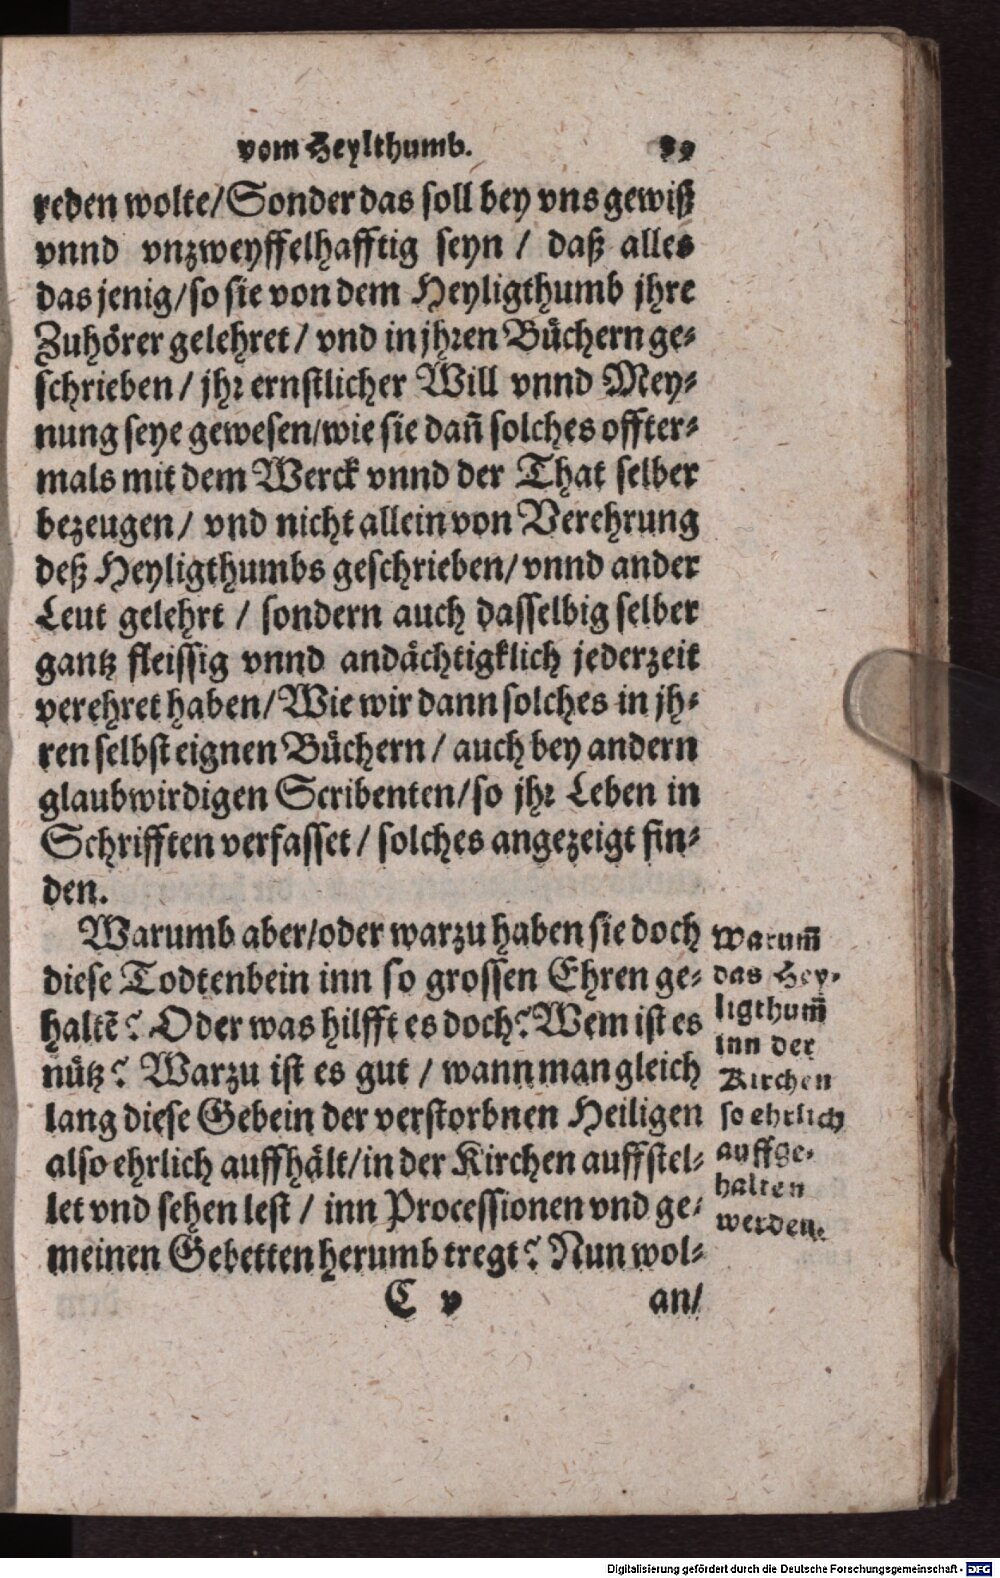 vom Heylthumb. 89
reden wolte/Sonder das soll bey vns gewiß
vnnd vnzweyffelhafftig seyn / daß alles
das jenig/so sie von dem Heyligthumb jhre
Zuhörer gelehret / vnd in jhren Büchern ge-
schrieben / jhr ernstlicher Will vnnd Mey-
nung seye gewesen/wie sie dañ solches offter-
mals mit dem Werck vnnd der That selber
bezeugen/ vnd nicht allein von Verehrung
deß Heyligthumbs geschrieben/ vnnd ander
Leut gelehrt / sondern auch dasselbig selber
gantz fleissig vnnd andächtigklich jederzeit
verehret haben/ Wie wir dann solches in jh-
ren selbst eignen Büchern / auch bey andern
glaubwirdigen Scribenten/so jhr Leben in
Schrifften verfasset / solches angezeigt fin-
den.
Warumb aber/oder warzu haben sie doch
diese Todtenbein inn so grossen Ehren ge-
haltē? Oder was hilfft es doch? Wem ist es
nütz? Warzu ist es gut / wann man gleich
lang diese Gebein der verstorbnen Heiligen
also ehrlich auffhält/in der Kirchen auffstel-
let vnd sehen lest / inn Processionen vnd ge-
meinen Gebetten herumb tregt? Nun wol-
Warum̃
das Hey-
ligthum̃
inn der
Kirchen
so ehrlich
auffge-
halten
werden.
C v an/
Digitalisierung gefördert durch die Deutsche Forschungsgemeinschaft - DFG